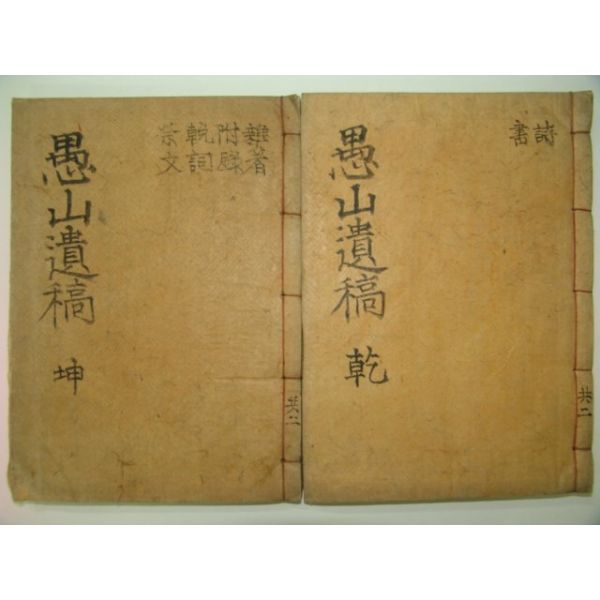 愚山遺稿 乾
詩
書
共二
愚山遺稿 坤
雜著
附錄
輓詞
祭文
共二